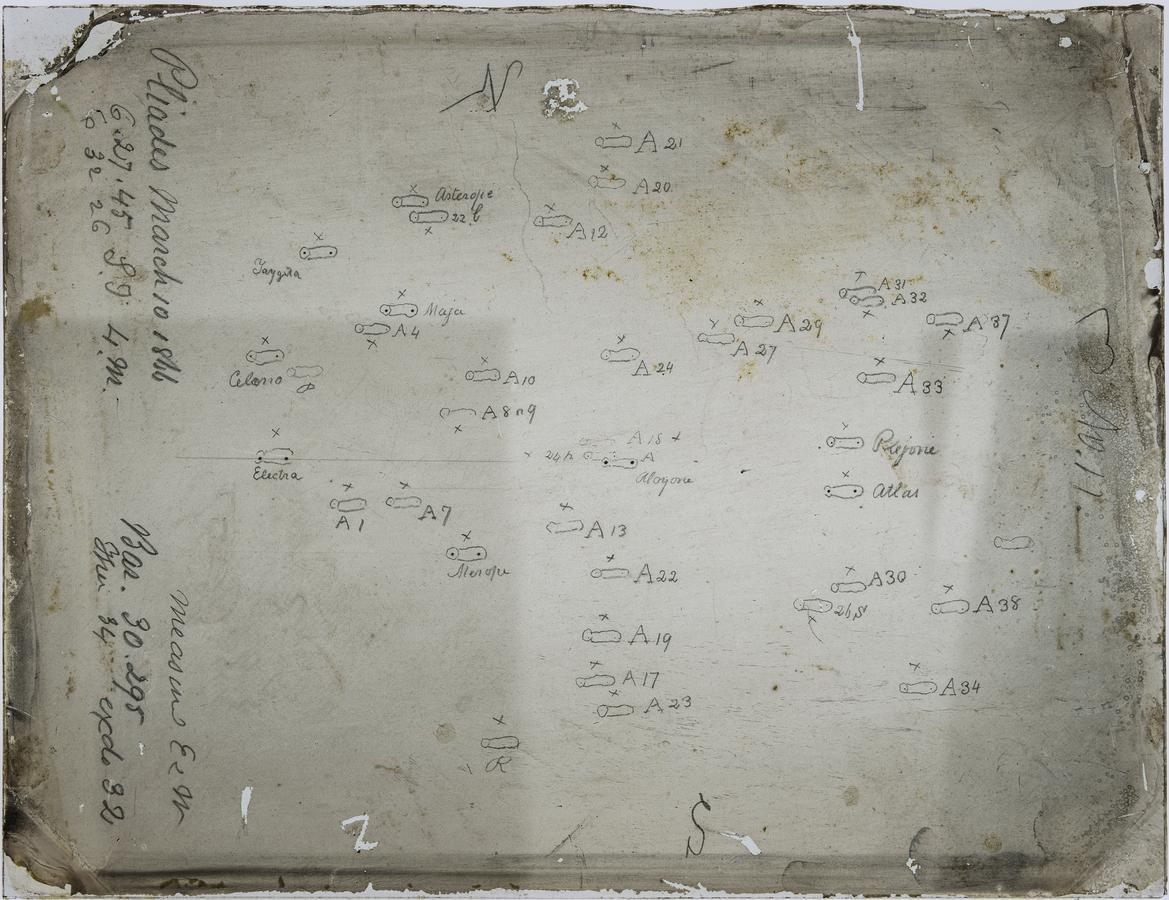 Pliades March 10 1866
6.27.45 S.T. 4.M.
5 32 26
N
A 21
A 20
Asterope
22 l
A 12
Taygeta
Maja
A 4
Celeno
P
A 10
A 8 n 9
A 24
A 29
A 27
A 31
A 32
A 37
A 33
Electra
24 p
A 18
A
Alcyone
Plejone
Atlas
A 1
A 7
Merope
A 13
A 22
A 30
26 s
A 38
A 19
A 17
A 23
A 34
R
S
Measure E & W
Bar. 30.295
34 expd 32